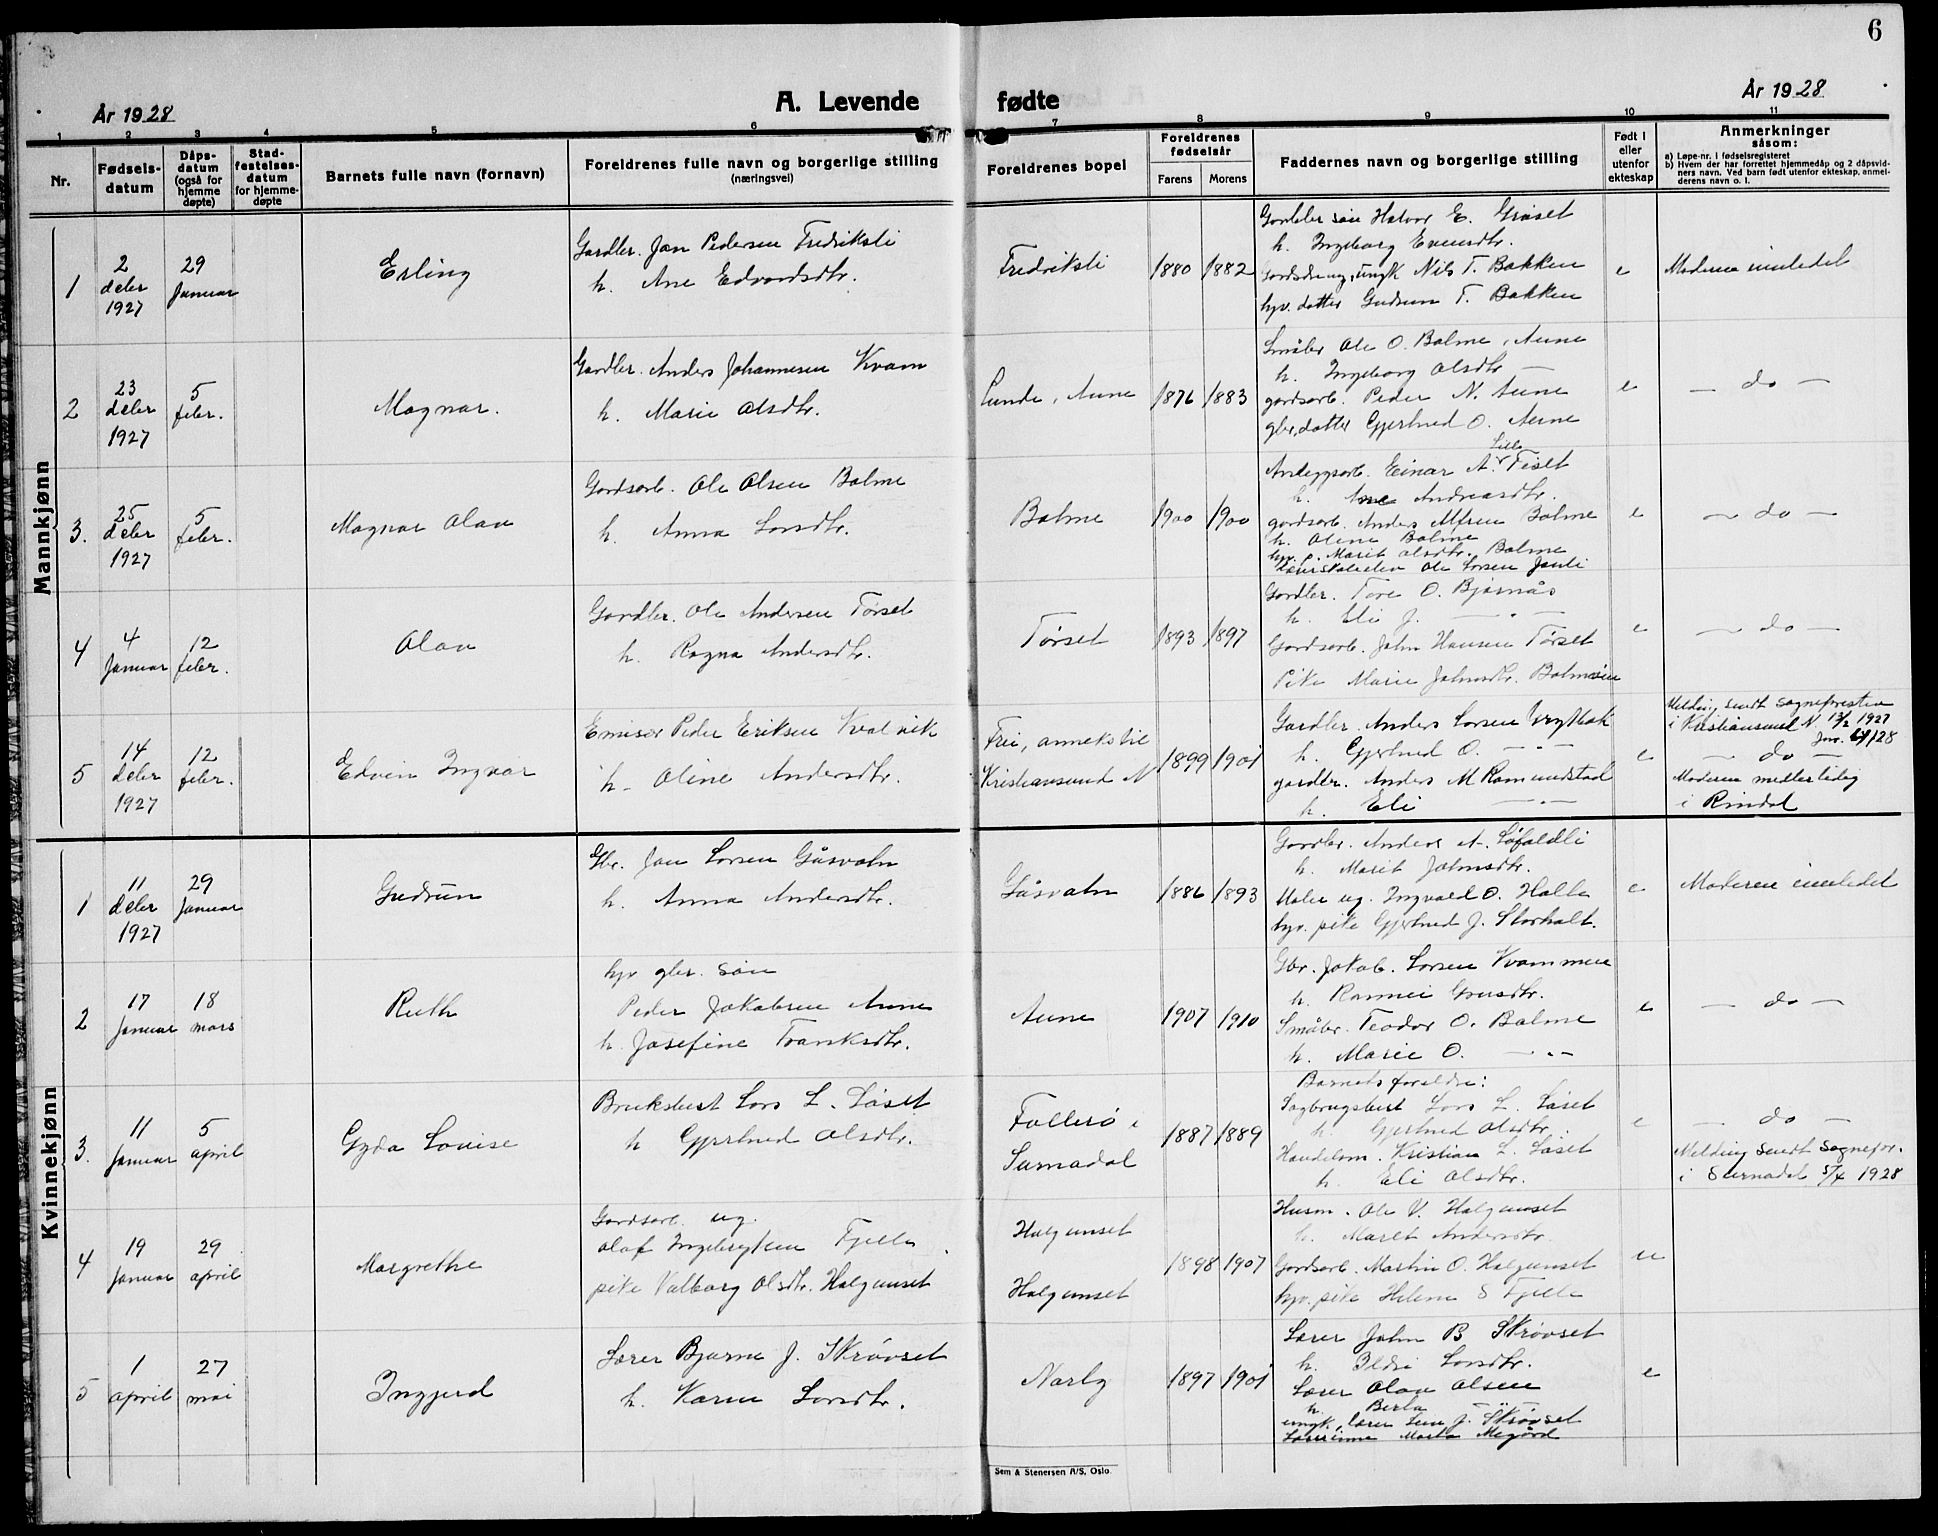 6
År 1928
A. Levende fødte
År 1928
1 2 3 4 5 6 7 8 9 10 11
Nr.
Fødsels-
datum
Dåps-
datum
(også for
hjemme
døpte)
Stad-
festelses-
datum
for hjemme-
døpte
Barnets fulle navn (fornavn)
Foreldrenes fulle navn og borgerlige stilling
(næringsvei)
Foreldrenes bopel
Foreldrenes
fødselsår
Farens Morens
Faddernes navn og borgerlige stilling
Født i
eller
utenfor
ekteskap
Anmerkninger
såsom:
a) Løpe-nr. i fødselsregisteret
b) Hvem der har forrettet hjemmedåp og 2 dåpsvid-
ners navn. Ved barn født utenfor ekteskap, anmel-
derens navn o. l.
Mannkjønn
1
2
deler
1927
29
Januar
Erling
Gardbr. Jon Pedersen Fredriksli
h. Ane Edvardsdtr.
Fredriksli
1880 1882
Gardbr søn Halvor E. Grøset
h. Ingeborg Evensdtr.
Gardsdreng, ungk Nils T. Bakken
hjv. datter Gudrun T. Bakken
e
Moderen innledet
2
23
deler
1927
5
febr.
Magnar.
Gardbr. Anders Johannesen Kvam
h. Marie Olsdtr.
Lunde, Aune
1876 1883
Småbr Ole O. Bolme, Aune
h. Ingeborg Olsdtr —
gardsarb. Peder N. Aune
gbr. datter Gjertrud O. Aune
e
— do —
3.
25
deler
1927
5
febr.
Magnar Olav
Gardsarb. Ole Olsen Bolme
h. Anna Larsdtr.
Bolme
1900 1900
Anleggsarb. Einar A. Lille Tiset
h. Ane Andreasdtr.
gardsarb. Anders Alfren Bolme
h. Oline Bolme
hjv. p. Marit Olsdtr. Bolme
Lærerskoleelev Ole Larsen Janli
e
— do —
4
4
Januar
12
febr.
Olav
Gardbr. Ole Andersen Tørset
h. Ragna Andersdtr.
Tørset
1893 1897
Gardbr. Tore O. Bjørnås
h. Eli J. — " —
Gardsarb. John Hansen Tørset
Pike Marie Johnsdtr. Bolmsøien
e
— do —
5
14
deler
1927
12
febr.
Edvin Ingvar
Emisær Peder Eriksen Kvalvik
h. Oline Andersdtr.
Frei, anneks til
Kristiansund N
1899 1901
Gardbr. Anders Larsen
h. Gjertrud O. — " —
gardbr. Anders M Romundstad
h. Eli — " —
e
Melding sendt sognepresten
i Kristiansund N 13/2 1927
— do —
Moderen midlertidig
i Rindal
Kvinnekjønn
1
11
deler
1927
29
Januar
Gudrun
Gbr. Jon Larsen Gåsvatn
h. Anna Andersdtr.
Gåsvatn
1886 1893
Gardbr. Anders A. Løfaldli
h. Marit Johnsdtr.
Maler ug. Ingvald O. Halle
hjv. pike Gjertrud J. Storholt.
e
Moderen innledet
2
17
Januar
18
mars
Ruth
hjv gbr. søn
Peder Jakobsen Aune
h. Josefine Franksdtr.
Aune
1907 1910
Gbr. Jakob Larsen Kvammen
h. Rannei Gunsdtr.
Småbr. Teodor O. Bolme
h. Marie O. — " —
e
— do —
3.
11
Januar
5
april
Gyda Louise
Bruksbest Lars L. Løset
h Gjertrud Olsdtr.
Follesø i
Surnadal
1887 1889
Barnets foreldre:
Sagbrugsbest Lars L. Løset
h. Gjertrud Olsdtr.
Handelsm. Kristian L. Løset
h. Eli Olsdtr.
e
— do —
Melding sendt sognepr.
i Surnadal 5/4 1928
4
19
Januar
29
april
Margrethe
Gardsarb. ug.
Olaf Ingebrigtsen Fjelle
pike Valborg Olsdtr. Halgunset
Halgunset
Halgunset
1898 1907
Husm. Ole V. Halgunset
h. Marit Andersdtr
Gardsarb. Martin O. Halgunset
hjv. pike Helene S Fjelle
u
5
1
april
27
mai
Ingjerd
Lærer Bjarne J. Skrøvset
h. Karen Larsdtr.
Nerby
1897 1901
Lærer John B Skrøvset
h. Ildri Larsdtr.
Lærer Olav Olsen
h. Berta — " —
ungk. lærer Lars J. Skrøvset
Lærerinne Marta Megård
e
Sem & Stenersen A/S, Oslo